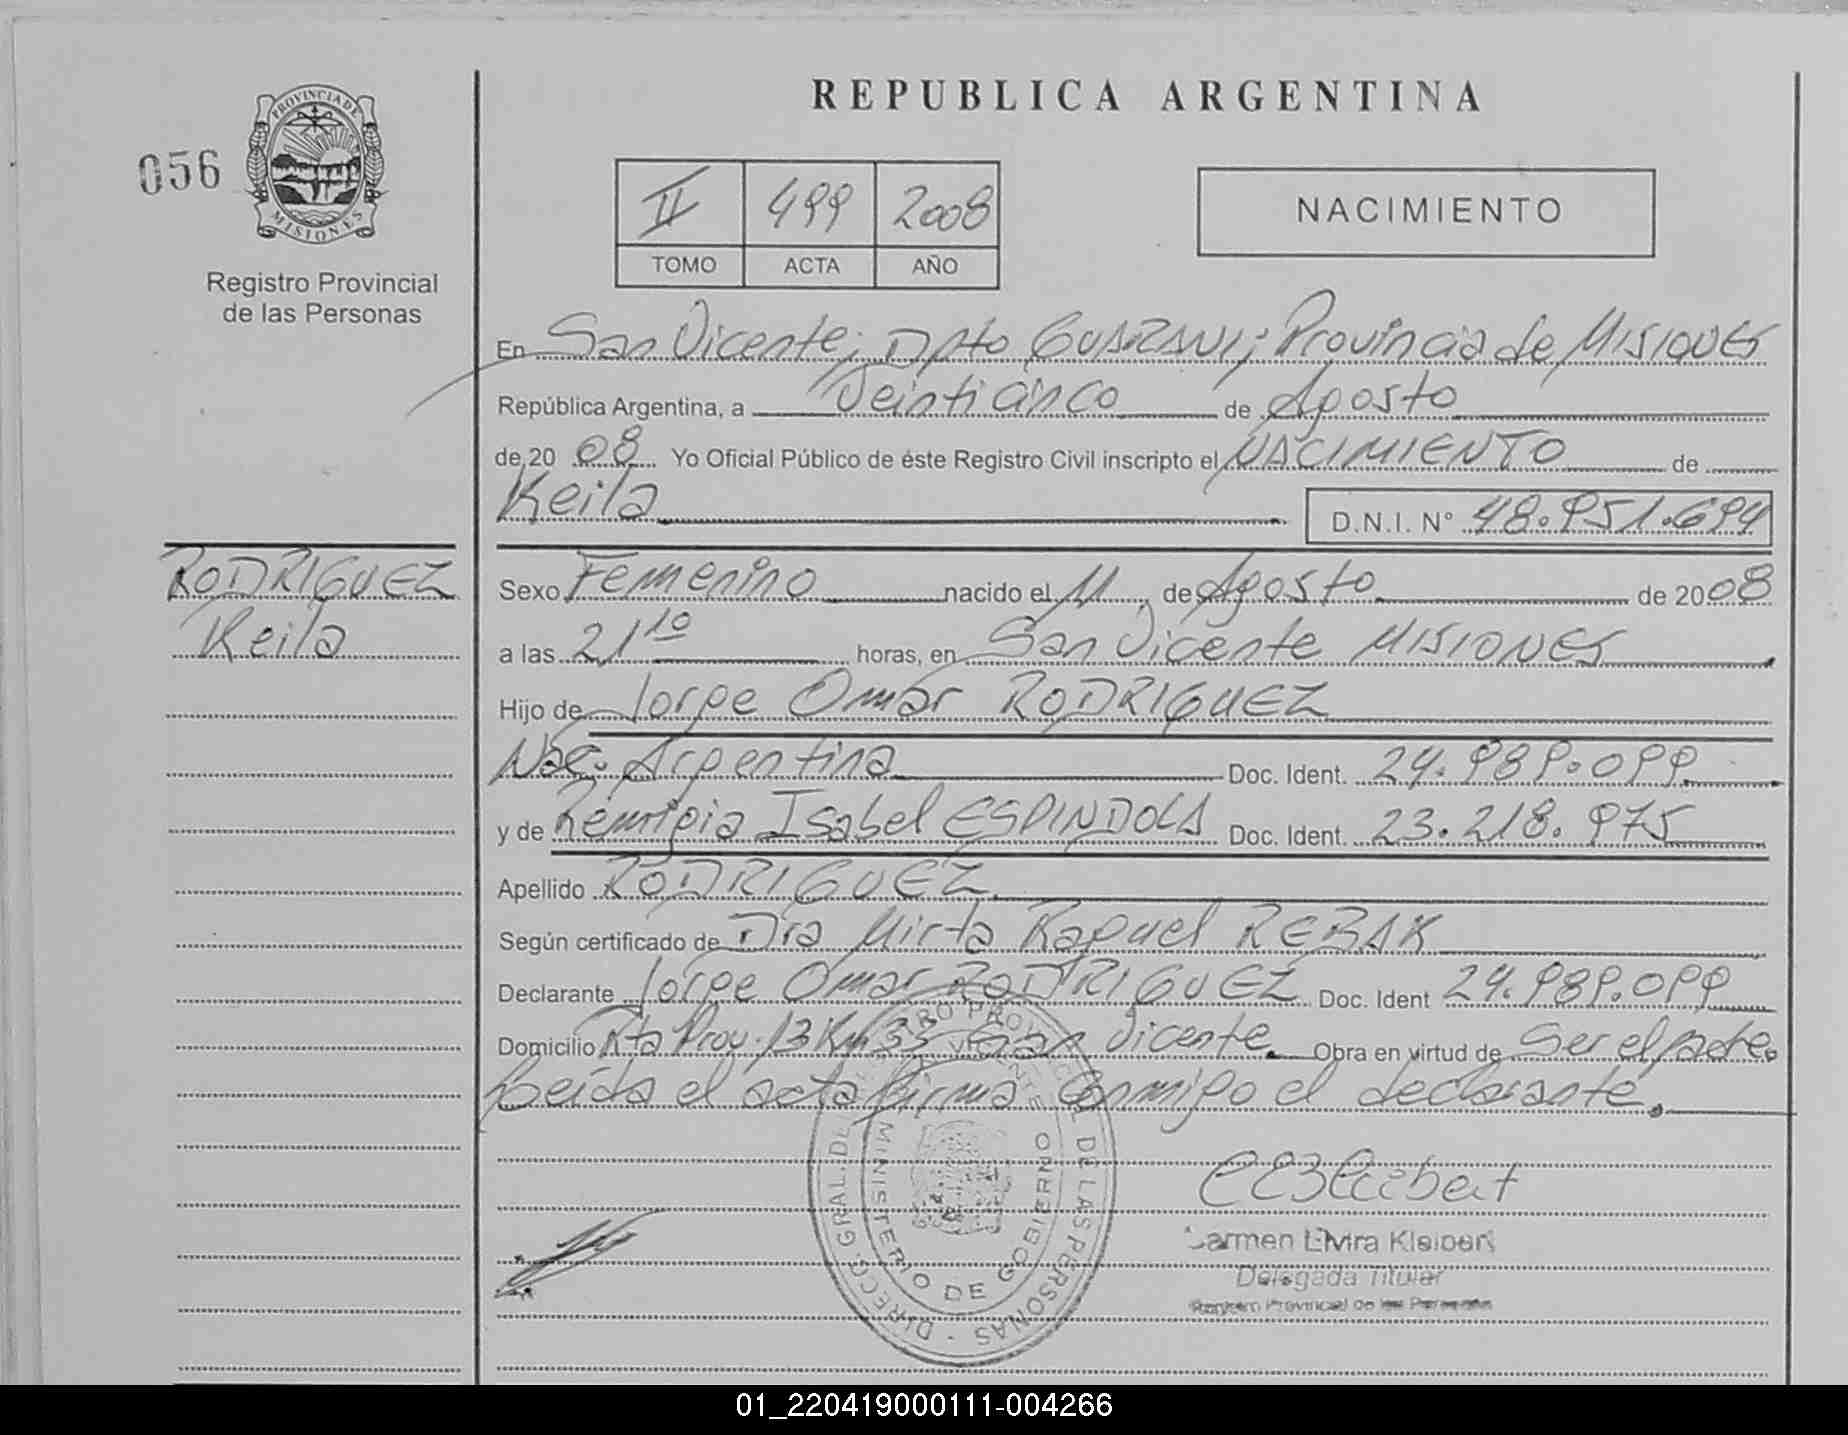 REPUBLICA ARGENTINA
056
PROVINCIA DE
MISIONES
Registro Provincial
de las Personas
II 499 2008
TOMO ACTA AÑO
NACIMIENTO
En San Vicente; Dpto GUARANI; Provincia de MISIONES
República Argentina, a Veinticinco de Agosto
de 20 08 Yo Oficial Público de éste Registro Civil inscripto el NACIMIENTO de
Keila
D.N.I. Nº 48.951.694
RODRIGUEZ
Keila
Sexo Femenino nacido el 11 de Agosto de 2008
a las 21 10 horas, en San Vicente MISIONES
Hijo de Jorge Omar RODRIGUEZ
Nac. Argentina Doc. Ident. 24.989.099
y de Remigia Isabel ESPINDOLA Doc. Ident. 23.218.975
Apellido RODRIGUEZ
Según certificado de Dra Mirta Raquel REBAK
Declarante Jorge Omar RODRIGUEZ Doc. Ident 24.989.099
Domicilio Rta Prov. 13 Km 33 San Vicente. Obra en virtud de Ser el padre.
Leída el acta firma conmigo el declarante.
DIRECC. GRAL. DEL REGISTRO PROVINCIAL DE LAS PERSONAS
MINISTERIO DE GOBIERNO
Carmen Elvira Kleibert
Delegada Titular
Registro Provincial de las Personas
01_220419000111-004266